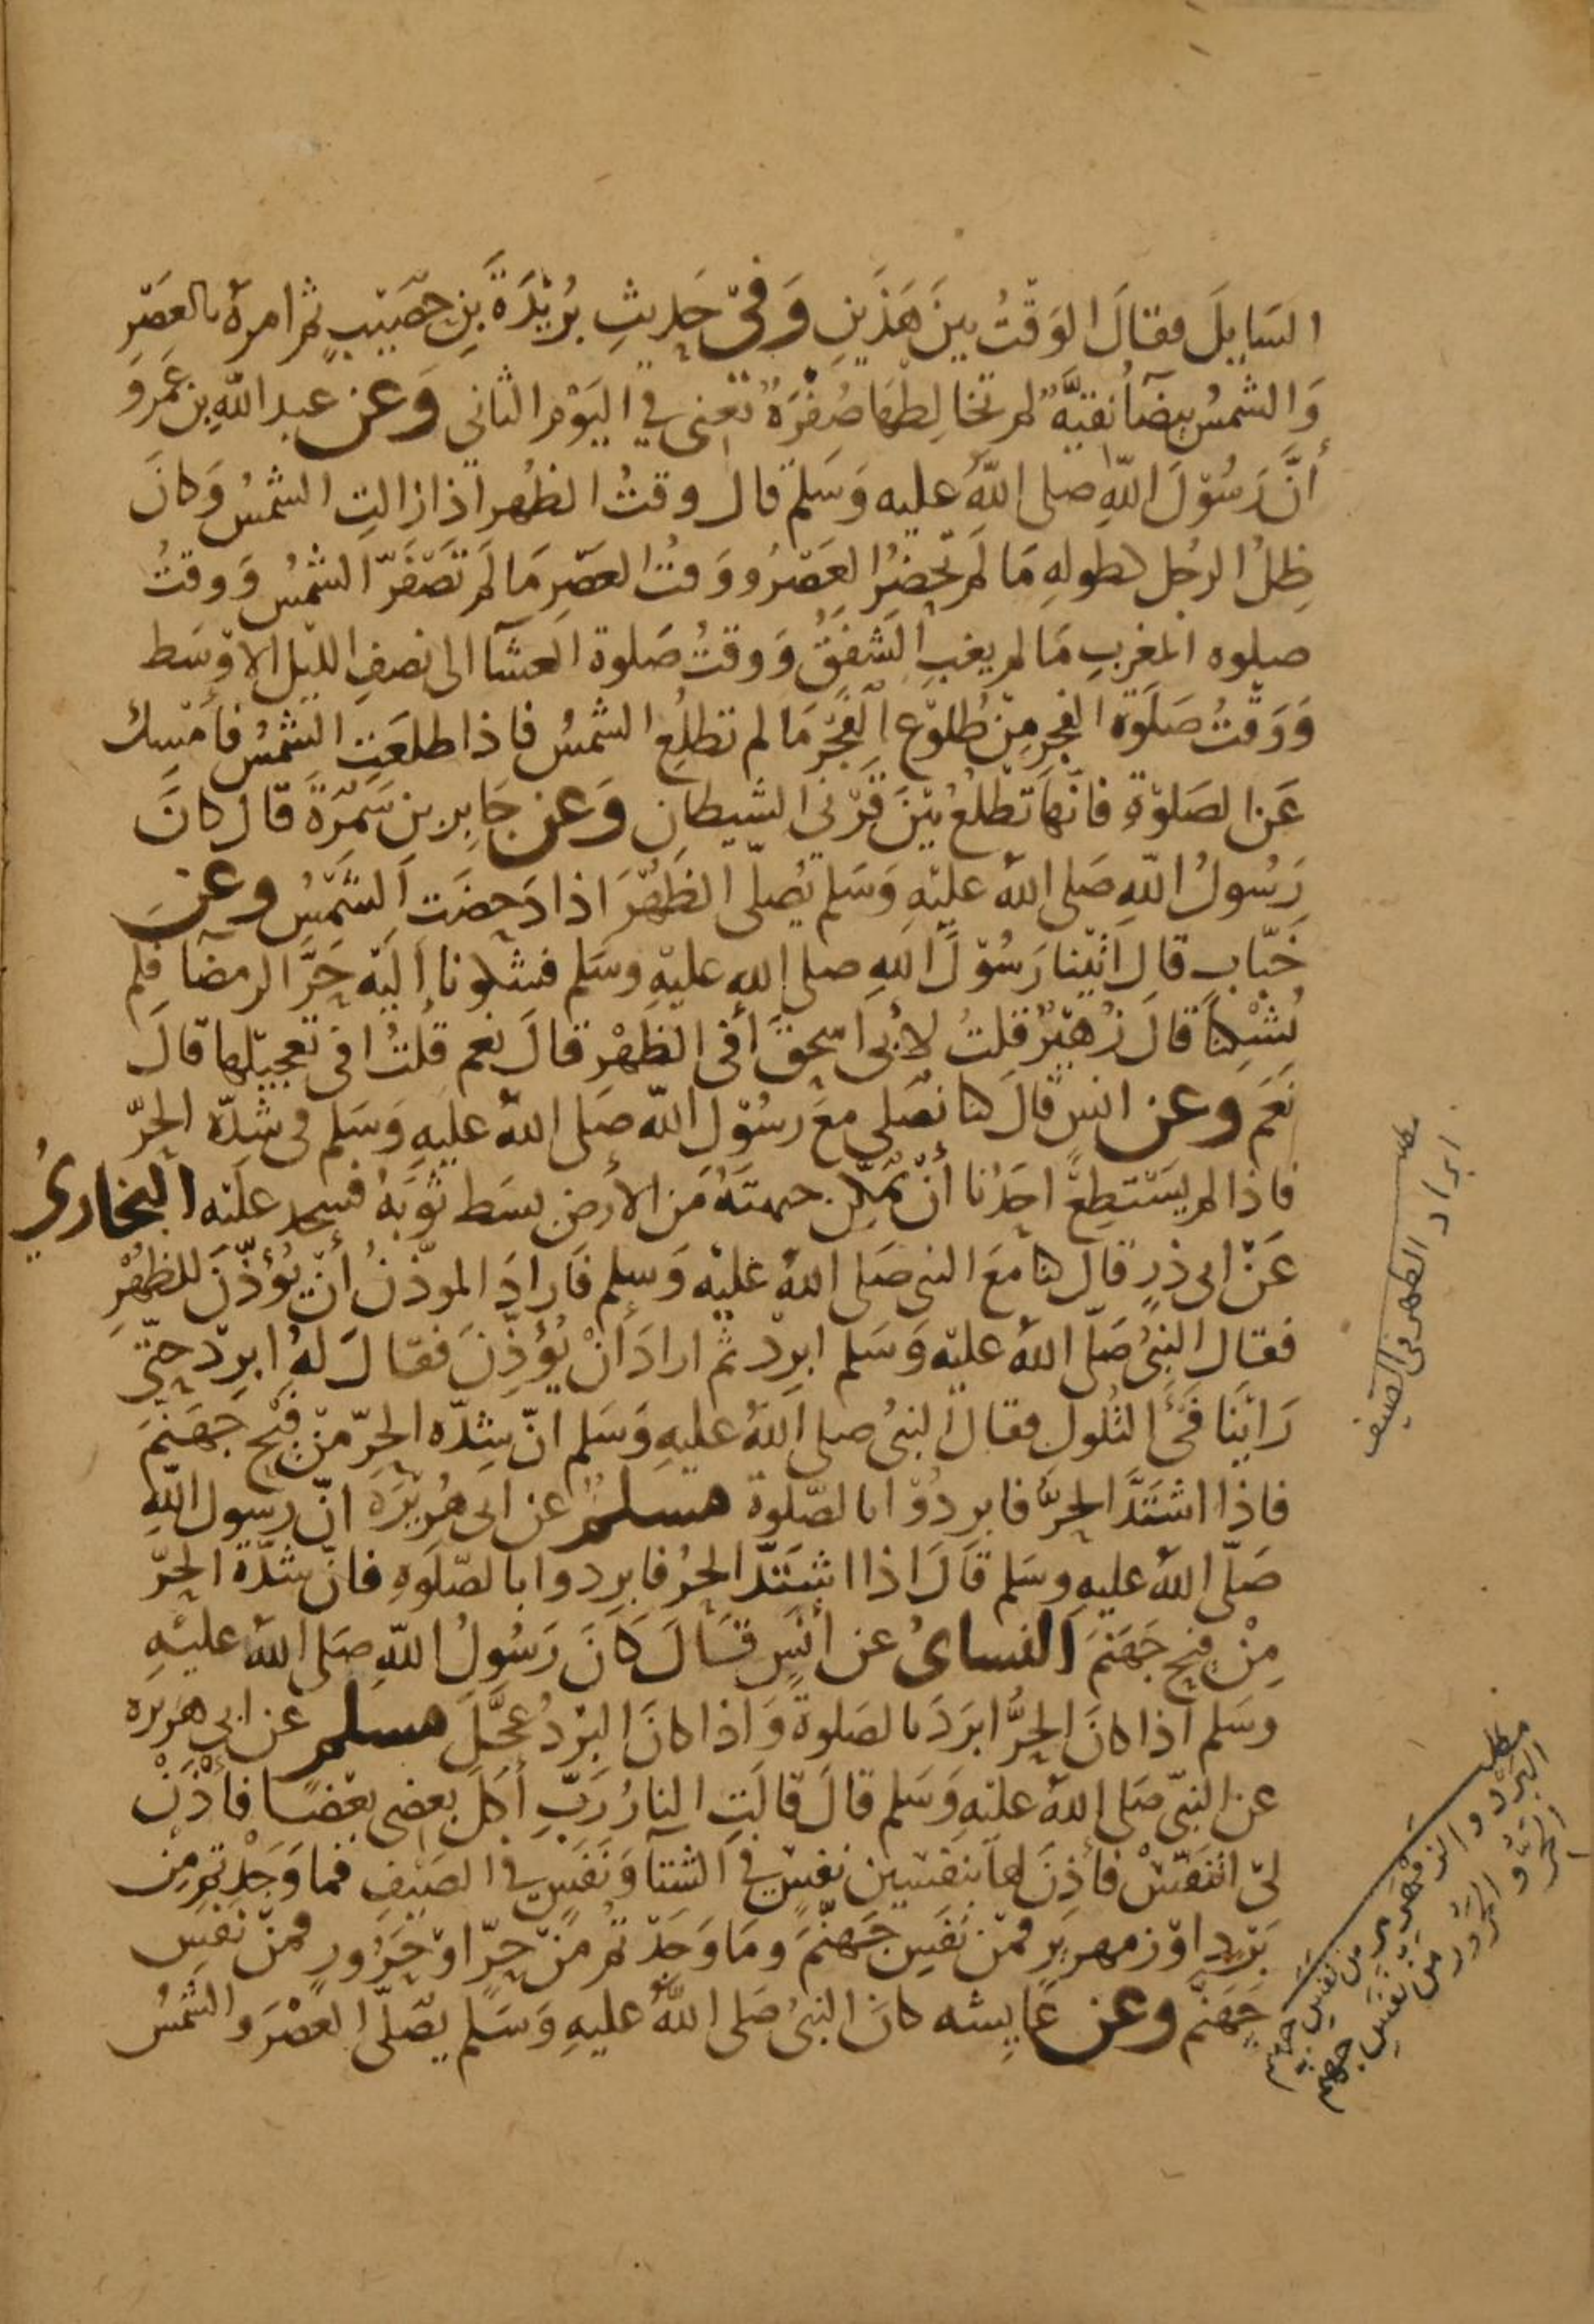 السَايِلَ فقالَ الوَقْتُ بينَ هَذَينِ وَفِي حَدِيثِ بُرَيْدَةَ بنِ حصَيْبٍ ثم امرهُ بالعَصْرِ
وَالشمسُ بيضآ نقيَّةٌ لم تخالِطهَا صُفْرَةٌ تعْنى في اليَوْمِ الثانى وَعن عبد اللهِ بن عَمرو
أنَّ رَسُوْلَ اللهِ صلى اللهُ عليه وَسَلم قال وقتُ الظهر اذا زالتِ الشمسُ وَكانَ
ظِلُ الرجُل كطولهِ مَا لم يحضُرِ العَصْرُ ووَقتُ العصْرِ مَا لم تَصْفَرّ الشمْسُ وَوقتُ
صلوه المغربِ مَا لم يغبِ الشفقُ وَوقتُ صَلوة العشآ الى نصفِ الليْلِ الاوْسَط
وَوَقْتُ صَلَوة الفجرِ مِنْ طُلوْعِ الفَجْرِ مَا لم تطلُعِ الشمسُ فاذا طلعَتِ الشمْسُ فأمْسِك
عَن الصَلوْةِ فانّهَا تطْلعُ بَيْنَ قَرْنى الشيطان وَعن جَابِر بن سَمُرَةَ قال كانَ
رَسُولُ اللهِ صَلى اللهُ عليْهِ وَسَلم يُصلّى الظهْرَ اذا دَحضَت الشّمْسُ وعن
خَبّابٍ قال اتيْنا رَسُوْلَ اللهِ صلى الله عليْهِ وسَلم فشكونا اليْه حَرَّ الرمضآ فلم
يُشْكِنَا قالَ زُهَيْرٌ قلتُ لأبى اسحقَ أفى الظهْرِ قالَ نعم قلتُ افى تعجيْلها قالَ
نَعَمَ وعن انسٍ قالَ كنا نصَلى معَ رسُوْل اللهِ صَلى اللهُ عليهِ وَسَلم فى شِدّه الحرّ
فاذا لم يَسْتطِعْ احَدُنا أنْ يمكِن جبهتَهُ من الأرض بسَط ثوْبَهُ فسجد عليْه البخارىُ
عَنْ ابى ذرٍ قال كنا مَعَ النبى صَلى اللهُ عليْه وَسلم فَارادَ الموذّنُ أنْ يُؤذّنَ للظهْرِ
فقال النبىُ صَلّى اللهُ عليْه وَسَلم ابرِدْ ثم ارادَ أنْ يُؤذِّنَ فقالَ لهُ ابرِدْ حتّى
رَايْنَا فَىْءَ التُلولِ فقال النبىُ صلى اللهُ عليهِ وَسَلم انّ شِدّه الحرِّ منْ فيْحِ جَهَنّمَ
فاذا اشتَدَّ الحرُّ فابردُوْا بالصّلوة مسلمٌ عن ابى هُرَيْرَه انّ رسول اللهِ
صَلّى اللهُ عليهِ وسَلم قَالَ اذا اشتَدّ الحرُ فابردوا بالصّلَوهِ فانّ شدّة الحرّ
مِنْ فيحِ جَهَنمَ النساىُ عن أنَسٍ قالَ كَانَ رَسُولُ اللهِ صَلى اللهُ عليْهِ
وسَلم اذا كانَ الحرُّ ابرَدَ بالصَلوةِ وَاذا كانَ البرْدُ عجَّلَ مسلم عن ابى هريره
عن النبىّ صَلى اللهُ عليْهِ وَسَلم قالَ قالَتِ النارُ رَبِّ أكلَ بعضى بعْضًا فأذَنْ
لىّ اتنَفّسْ فأذِنَ لها بنفسَين نفسٍ في الشتآ وَنَفَسٍ في الصَيْفِ فما وَجَدْتم مِن
بَرْدٍ اوْ زمهريرٍ فمن نَفَسِ جَهنّمَ ومَا وَجَدْتم منْ حرّ اوْ حَرُورٍ فمنْ نَفَسِ
جَهَنّم وعن عَايشه كانَ النبىُ صَلى اللهُ عليهِ وَسَلم يصَلّى العصْرَ والشمسُ
مطلب
ابراد الظهر فى الصيف
مطلب
البرد والزمهرير من نفس جهنم
الحر والحرور من نفس جهنم